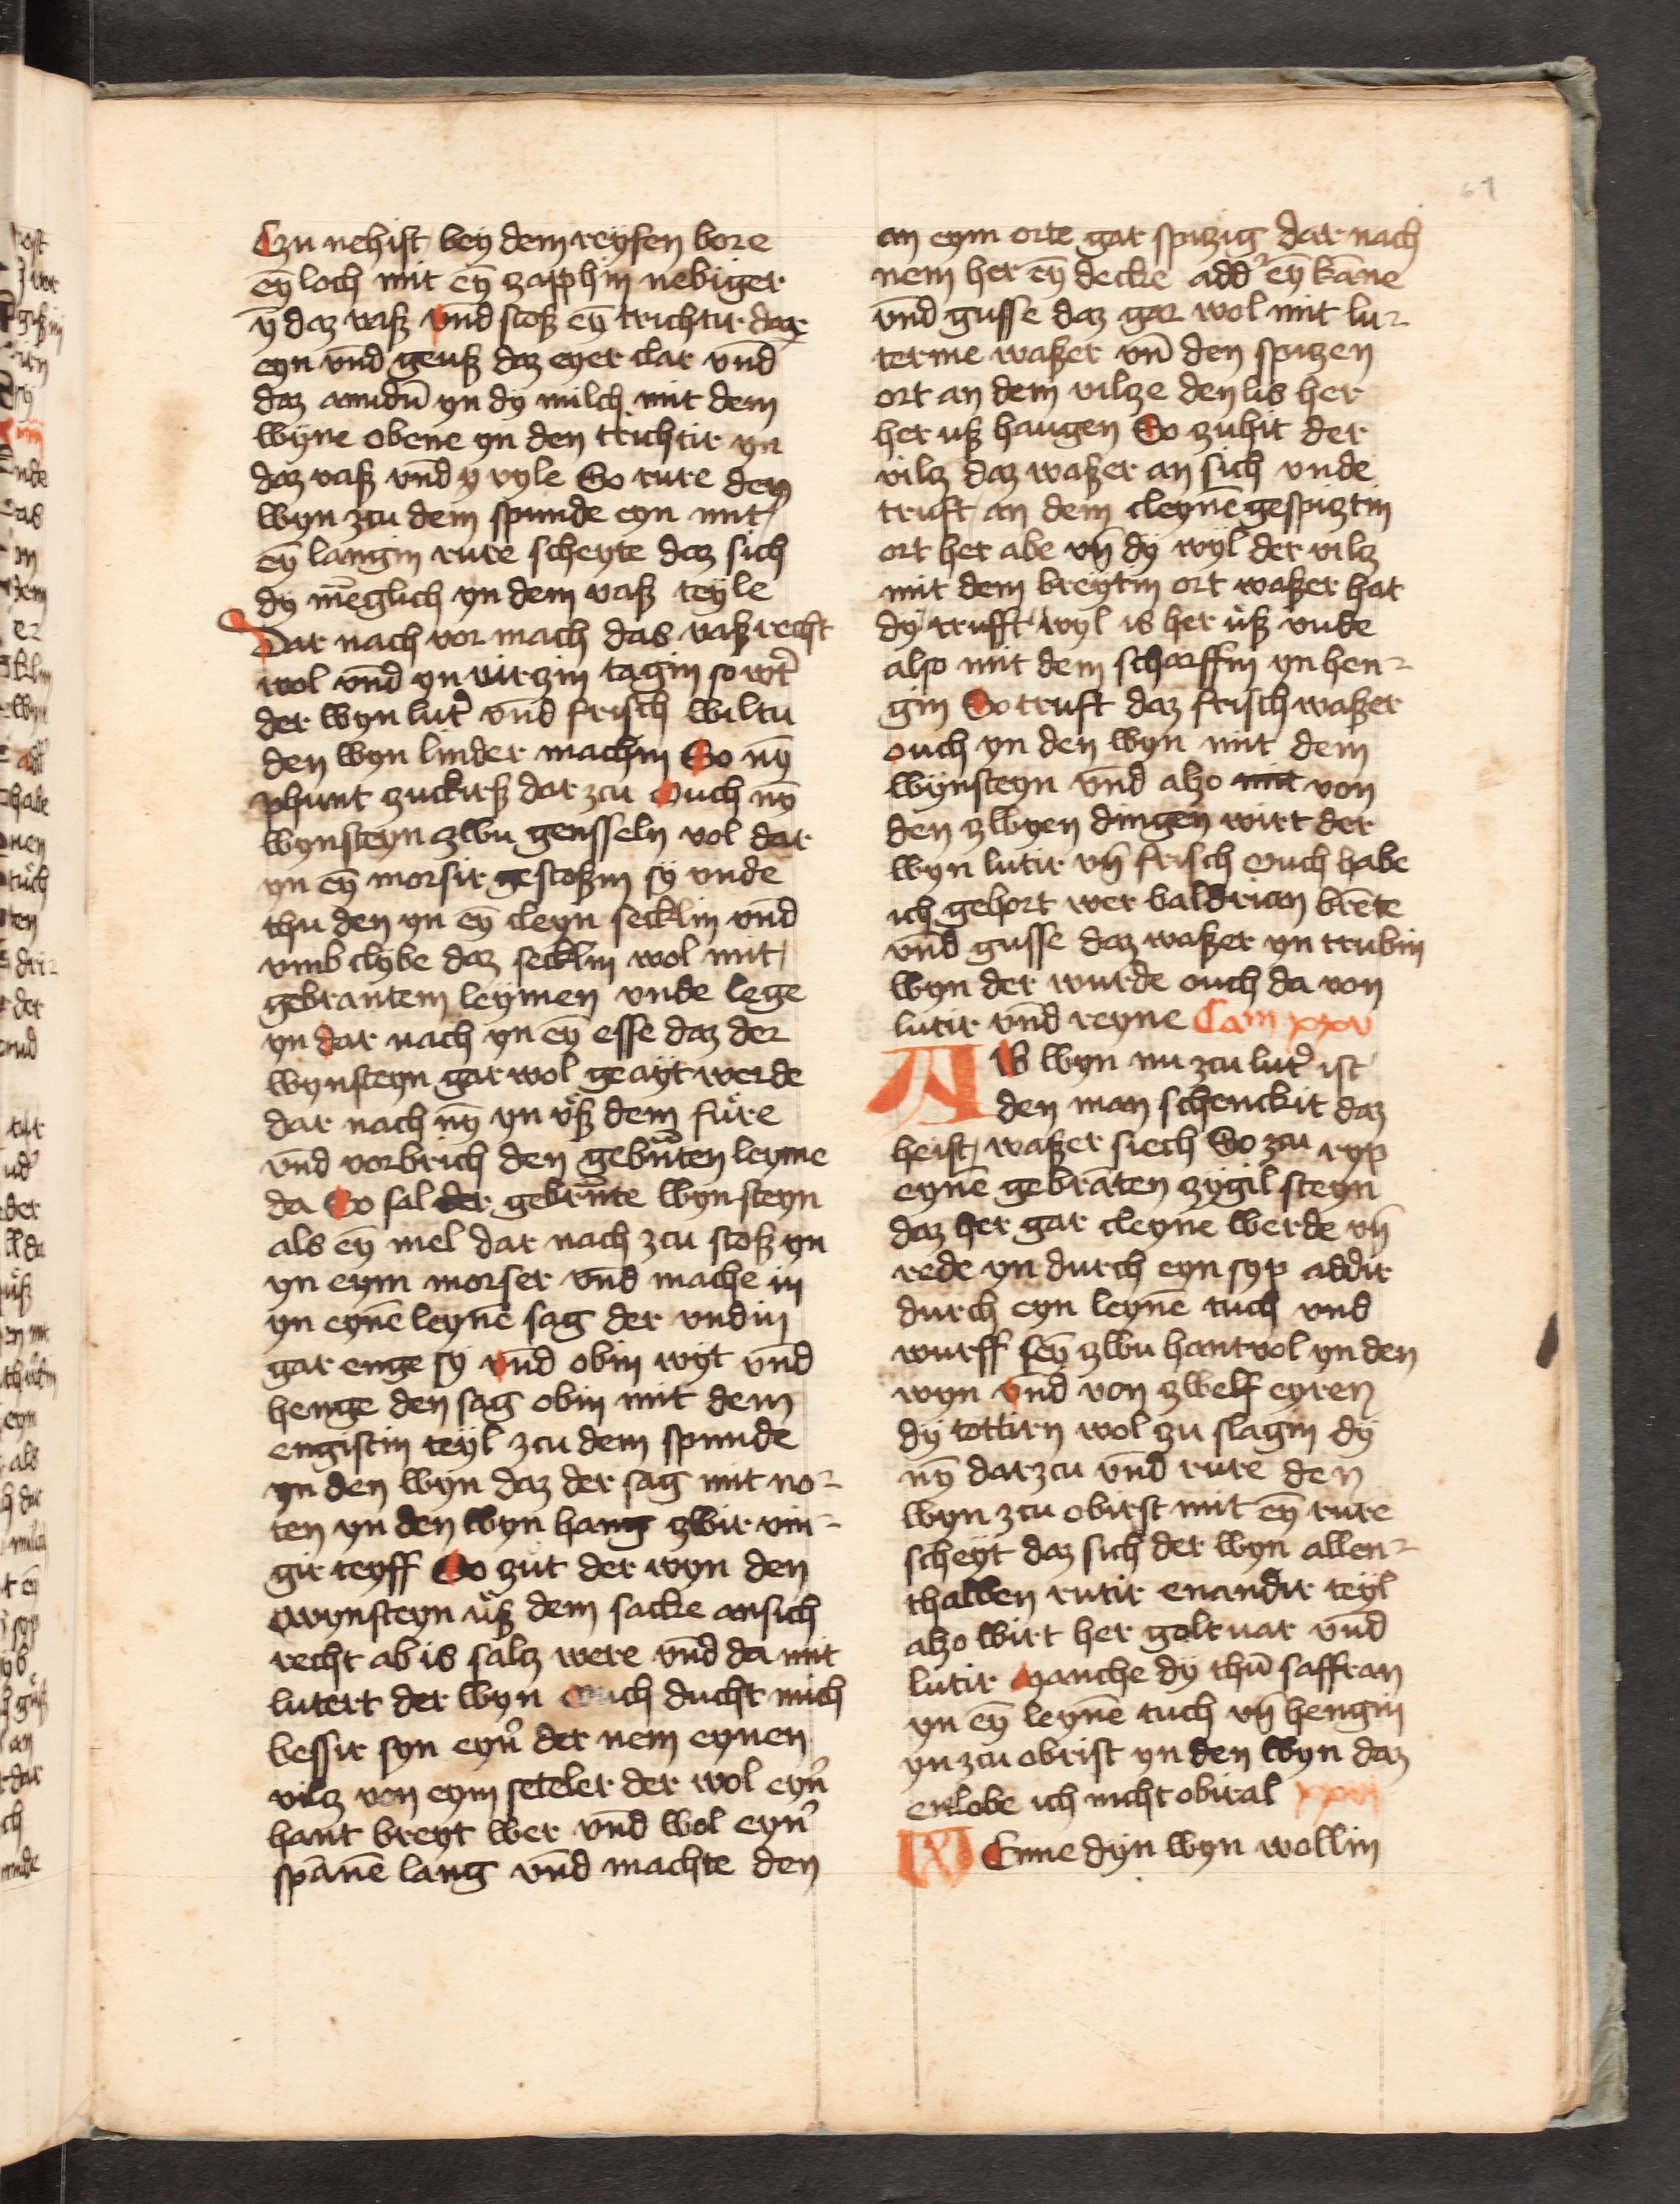 Czu nehist bey dem reyfen bore
ey̅ loch mit ey̅ zapphin nebiger
y̅ daz vasß vnd stoß ey̅ trichtir dar
eyn vnd geuß daz eyer clar vnd
daz amidu̅ yn dy milch mit dem
wyne obene yn den trichtir yn
daz vaß vnd y vyle So rure den
wyn zcu dem spunde eyn mit
ey̅ langin rure scheyte daz sich
dy me̅glich yn dem vaß teyle
Dar nach vor mach das vaß recht
wol vnd yn virzin tagin so wt̕
der wyn lut̕ vnd frisch wiltu
den wyn linder machin So ny̅
phunt zuckirß dar zcu Ouch ny̅
wynsteyn zwu gensseln vol dar
yn ey̅ morsir gestoßin sy vnde
thu den yn ey̅ cleyn secklin vnd
vmb clybe daz secklin wol mit
gebrantem leymen vnde lege
yn dar nach yn ey̅ esse daz der
wynsteyn gar wol geayt werde
dar nach ny̅ yn vß dem fure
vnd vorbrich den gebn̅ten leyme
da So sal der gebrn̅te wynsteyn
als ey̅ mel dar nach zcu stoß yn
yn eym morser vnd mache in
yn eyne̅ leyne̅ sag der vndin
gar enge sy vnd obin wyt vnd
henge den sag obin mit dem
engistin teyl zcu dem spunde
yn den wyn daz der sag mit no-
ten yn den wyn hang zwir vin-
gir teyff So zut der wyn den
wynsteyn uß dem sacke an sich
recht ab is salz were vnd da mit
lutert der wyn Ouch ducht mich
bessir syn eyn̕ der nem eynen
vilz von eym seteler der wol eyn̕
hant breyt wer vnd wol eyn̕
spanne̅ lang vnd machte den
an eym orte gar spizig dar nach
nem her ey̅ decke add̕ ey̅ kanne
vnd gusse daz gar wol mit lu-
terme waßer vn̅ den spizen
ort an dem vilze den lis her
her uß hangen So zuhit der
vilz daz waßer an sich vnde
truft an dem cleyne̅ gespiztin
ort her abe vn̅ dy wyl der vilz
mit dem breytin ort waßer hat
dy trufft wyl is her uß vnde
also mit dem scharffin yn hen-
gin So truft daz frisch waßer
ouch yn den wyn mit dem
wynsteyn vnd alzo mit von
den zwyen dingen wirt der
wyn lutir vn̅ frisch Ouch habe
ich gehort wer baldrian bre̅te
vnd gusse daz waßer yn trubin
wyn der wurde ouch da von
lutir vnd reyne Cam xxv
Ab wyn nu zcu lut̕ ist
den man schenckit daz
heist waßer siech So zcu ryp
eyne̅ gebra̅ten zygil steyn
daz her gar cleyne werde vn̅
rede yn durch eyn syp addir
durch eyn leyne̅ tuch vnd
wurff sey̅ zwu hant vol yn den
wyn vnd von zwelf eyren
dy tottirn wol zu slagin dy
ny̅ dar zcu vnd rure den
wyn zcu obirst mit ey̅ rure
scheyt daz sich der wyn allen-
thalben rutir enandir teyl
alzo wirt her goltvar vnd
lutir Manche dy thu̅ saffran
yn ey̅ leyne̅ tuch vn̅ hengin
yn zcu obrist yn den wyn daz
enlobe ich nicht obiral xxvi
Wenne dyn wyn wollin